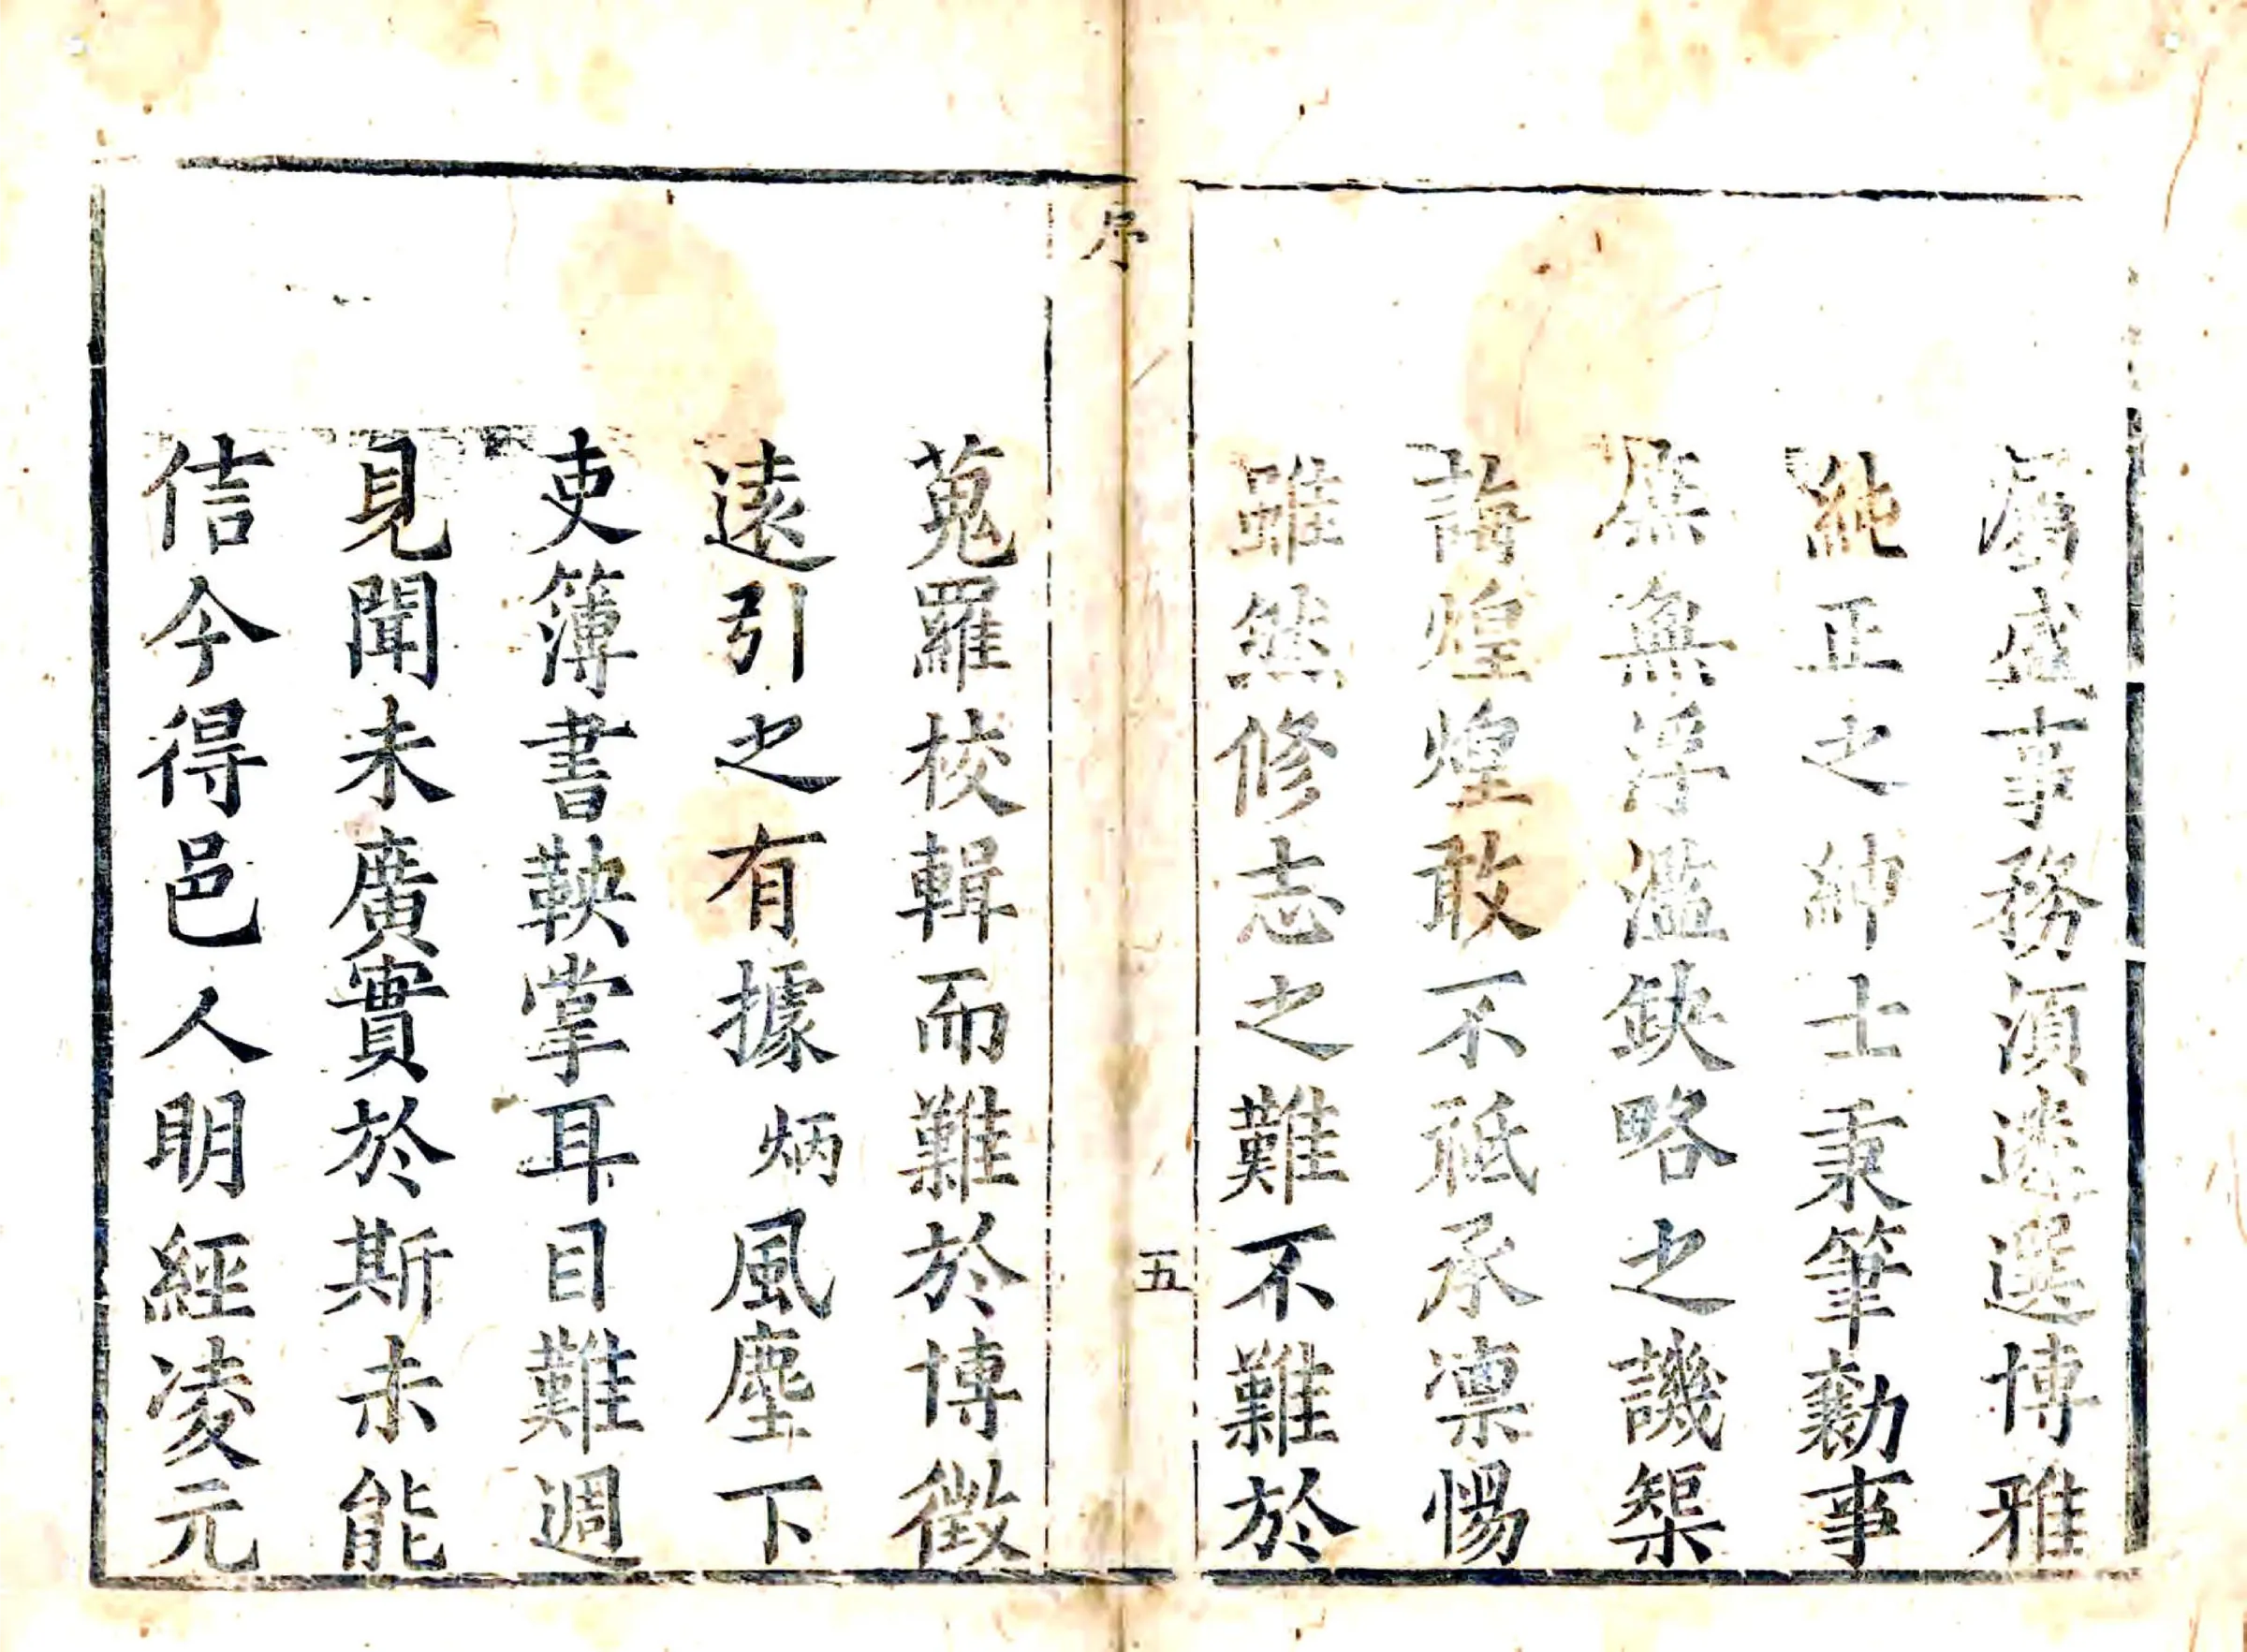 盛事務須遴選博雅
純正之紳士秉筆勷事
庶無浮濫缺略之譏榘
誨煌煌敢不祗承凛惕
雖然修志之難不難於
序
五
蒐羅校輯而難於博徵
遠引之有據炳風塵下
吏簿書鞅掌耳目難週
見聞未廣實於斯未能
信今得邑人明經凌元